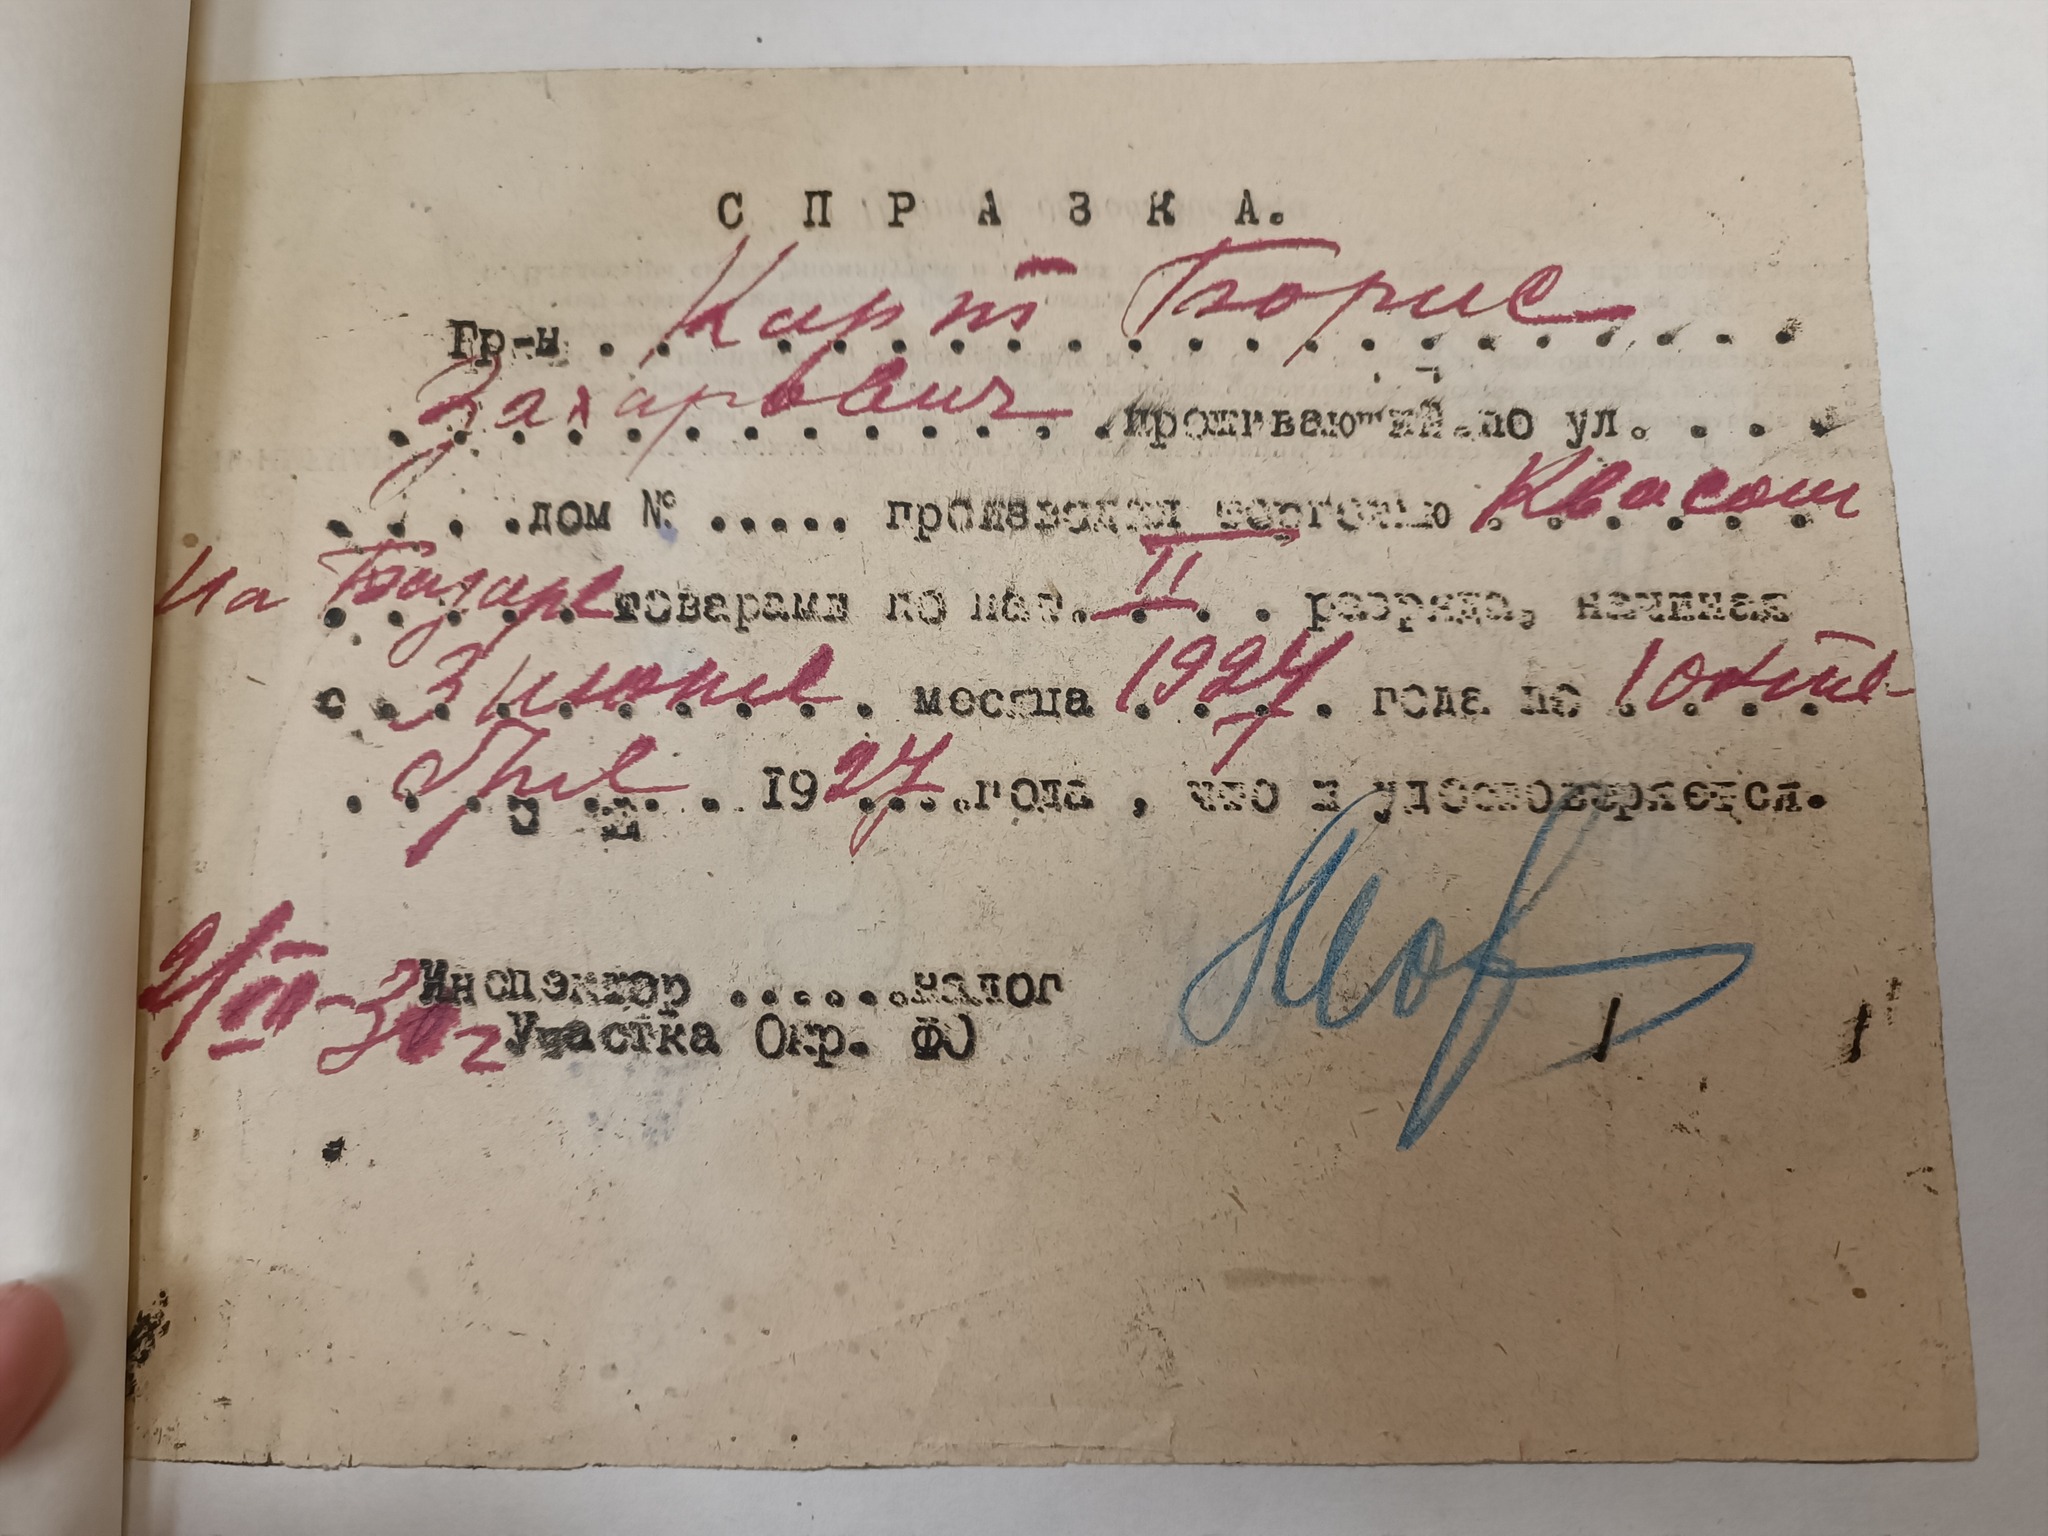 С П Р А В К А.
Гр-н . . Карт Борис
Захарович проживающий по ул. . . .
. . . . дом № ..... производил торговлю Квасом
На Базаре товарами по пат. II . . разряда, начиная
с 3 июня месяца 1927 года по 1 октя
бря 1927 года , что и удостоверяется.
21/VII-30г Инспектор .......налог
Участка Окр. ФО